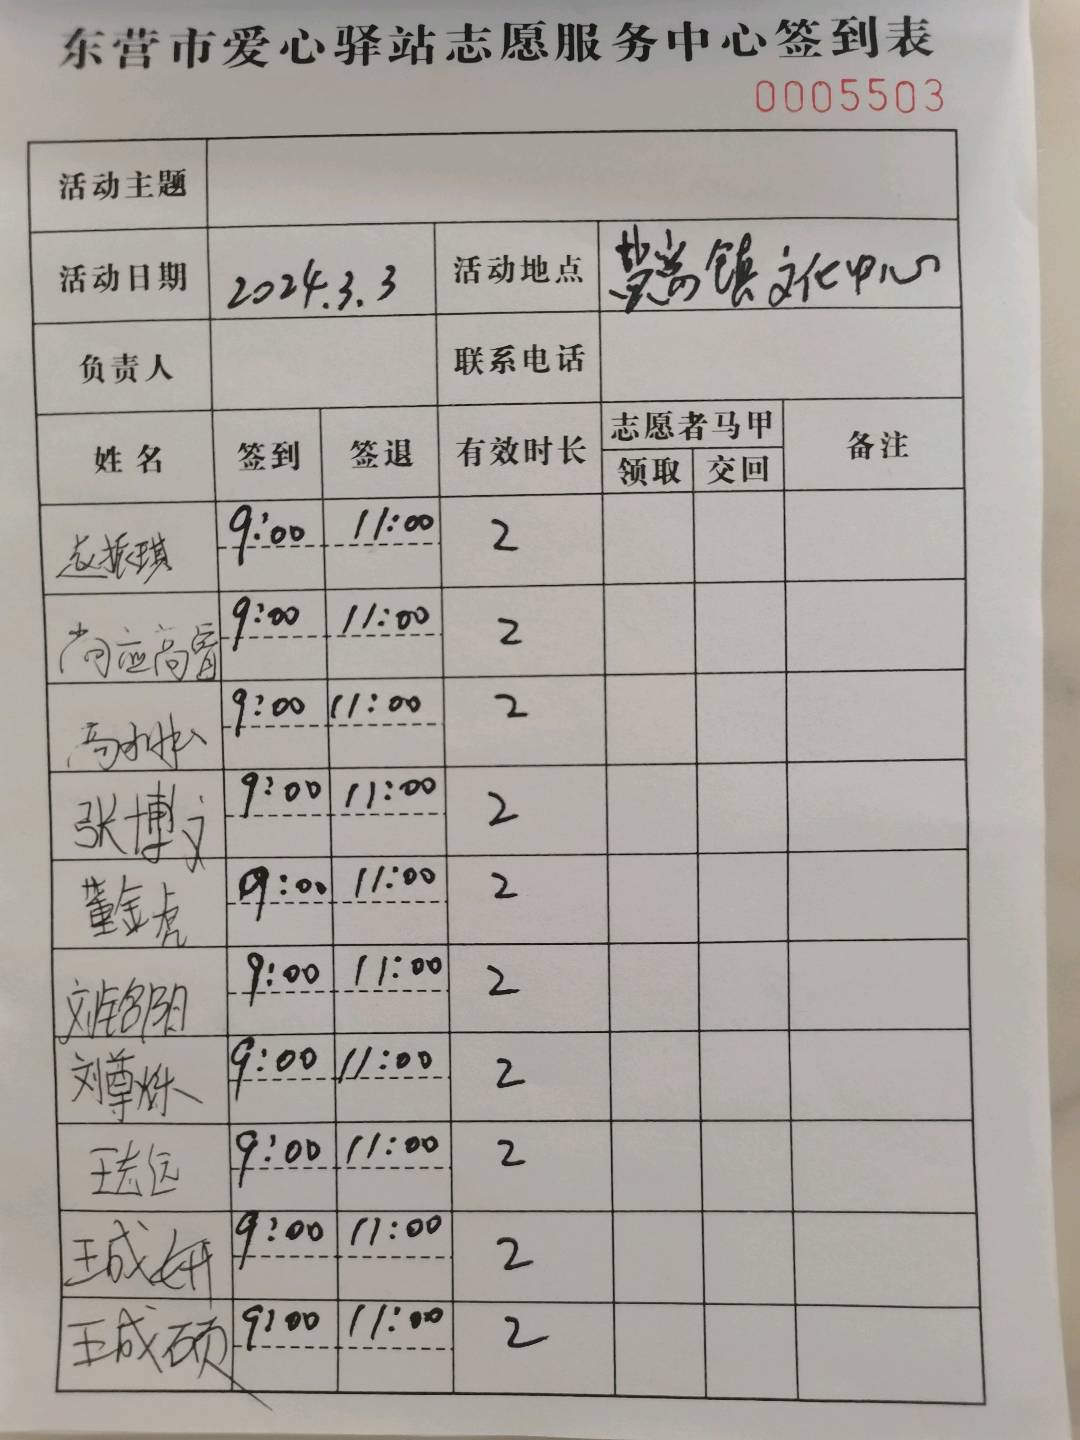 东营市爱心驿站志愿服务中心签到表
0005503
活动主题
活动日期 2024.3.3 活动地点 镇文化中心
负责人 联系电话
姓名 签到 签退 有效时长 志愿者马甲 备注
领取 交回
赵振琪 9:00 11:00 2
尚应高睿 9:00 11:00 2
高永松 9:00 11:00 2
张博文 9:00 11:00 2
董金虎 9:00 11:00 2
刘铭阳 9:00 11:00 2
刘尊烁 9:00 11:00 2
王志远 9:00 11:00 2
王成妍 9:00 11:00 2
王成硕 9:00 11:00 2